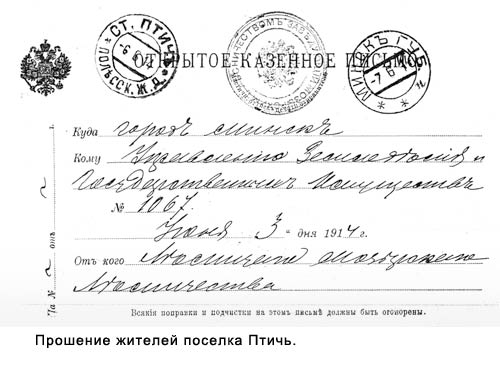 СТ. ПТИЧЬ
-6 6
ПОЛѢССК. Ж. Д.
МИНСКЪ ГУБ.
-7 6 14
ОТКРЫТОЕ КАЗЕННОЕ ПИСЬМО.
Куда городъ Минскъ
Кому Управленію Земледѣлія и
Государственныхъ Имуществъ
№ 1067.
Іюня 3 дня 1914 г.
Отъ кого Лѣсничаго Мозырскаго
Лѣсничества
На № отъ
Всякія поправки и подчистки на этомъ письмѣ должны быть оговорены.
Прошение жителей поселка Птичь.